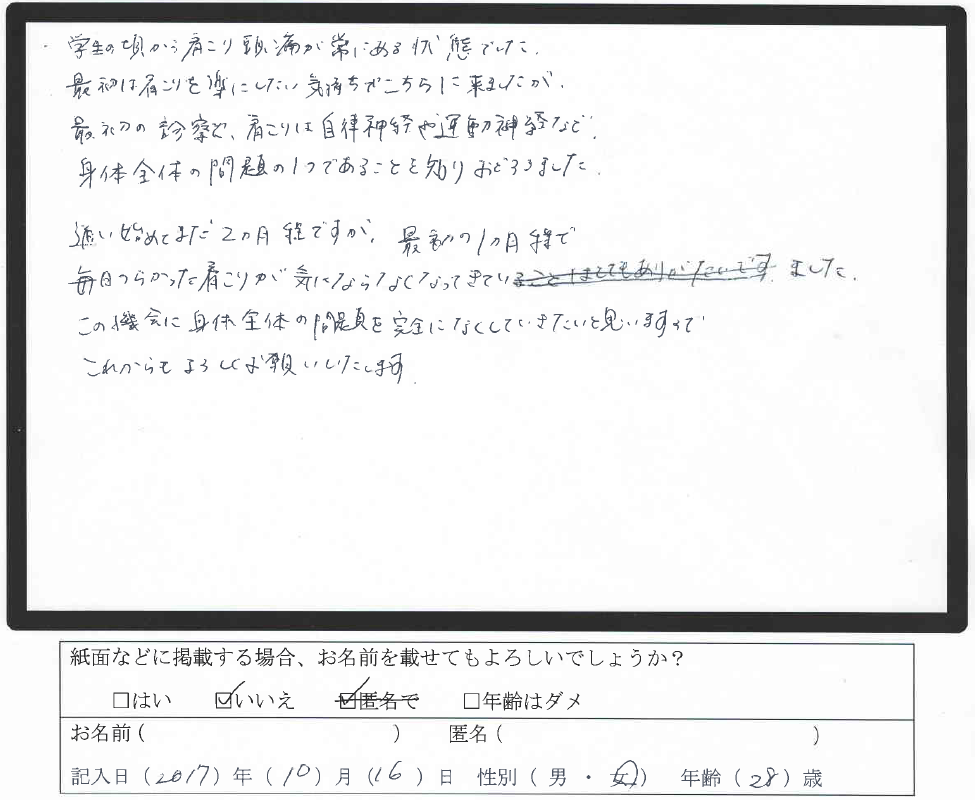 ・学生の頃から肩こり頭痛が常にある状態でした.
最初は肩こりを楽にしたい気持ちでこちらに来ましたが、
最初の診察で、肩こりは自律神経や運動神経など、
身体全体の問題の1つであることを知りおどろきました.
通い始めてまだ2カ月程ですが、最初の1カ月程で
毎日つらかった肩こりが気にならなくなってきていることはとてもありがたいです.ました.
この機会に身体全体の問題を完全になくしていきたいと思いますので
これからもよろしくお願いいたします.
紙面などに掲載する場合、お名前を載せてもよろしいでしょうか？
□はい ☑いいえ ☑匿名で □年齢はダメ
お名前（ ） 匿名（ ）
記入日（2017）年（10）月（16）日 性別（男・女） 年齢（28）歳